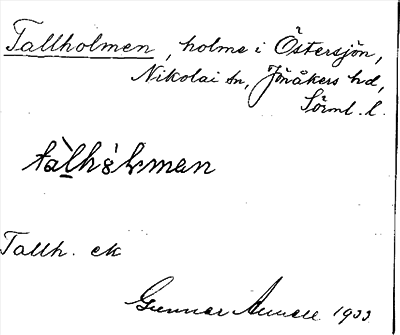 Tallholmen, holme i Östersjön,
Nikolai sn, Jönåkers hd,
Sörml. l.
tàlhɔ̀lman
Tallh. ek
Gunnar 1933.